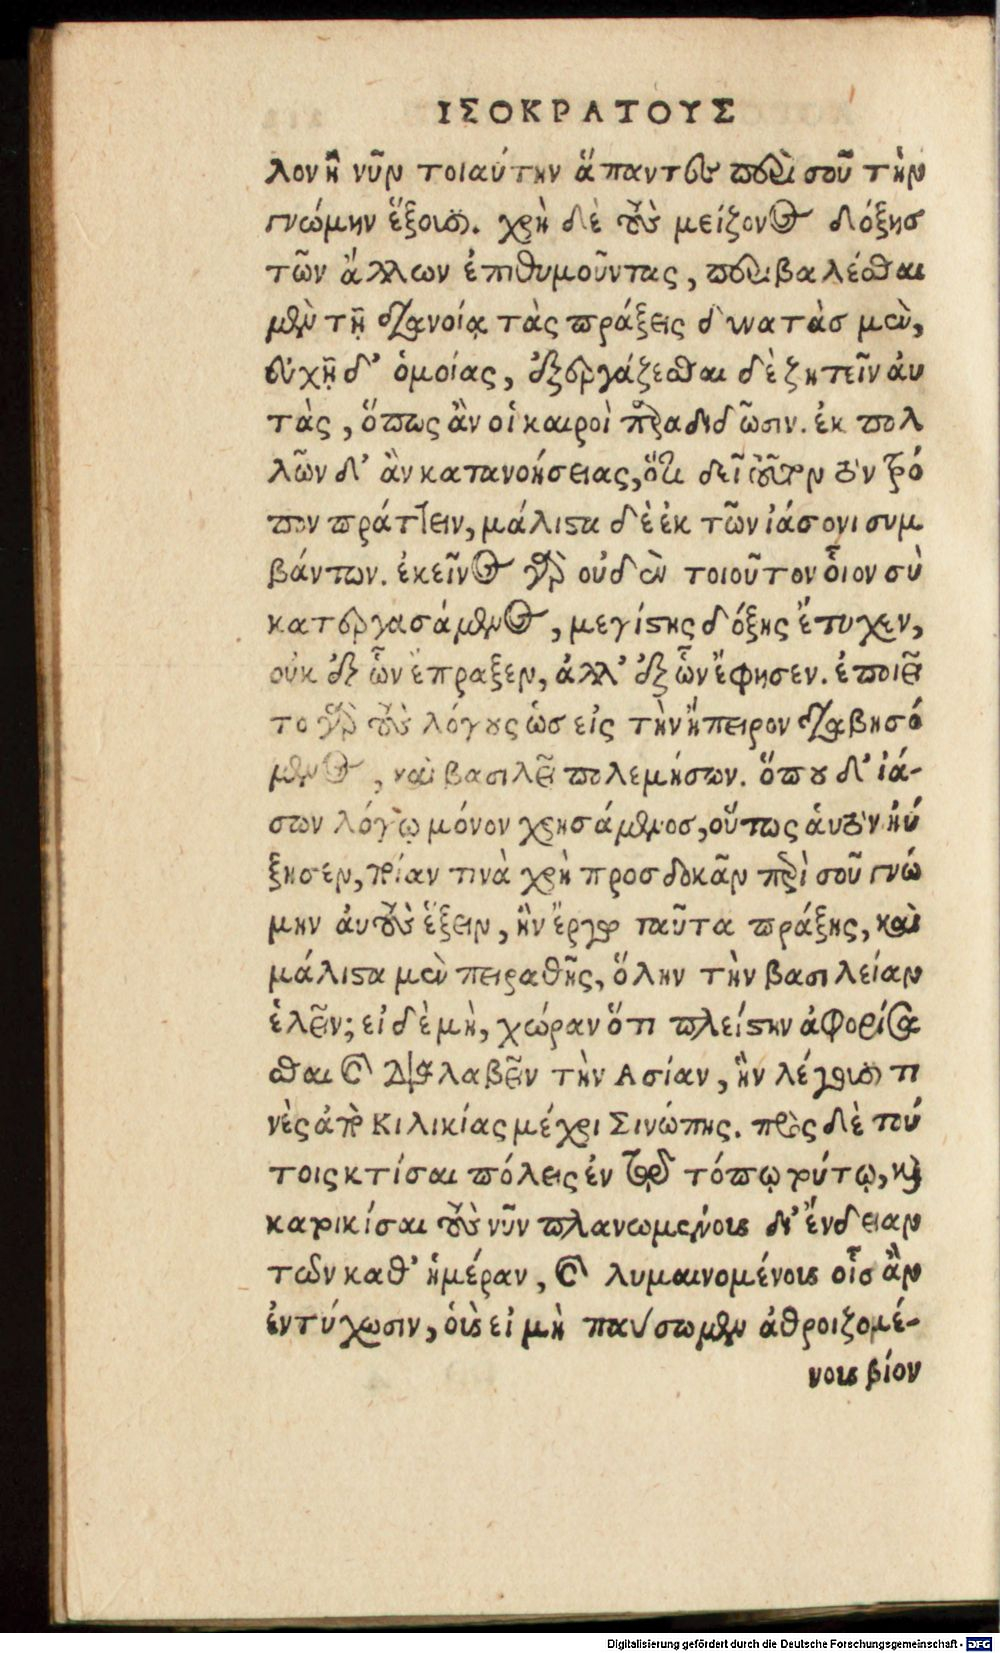 ΙΣΟΚΡΑΤΟΥΣ
λον ἢ νῦν τοιαύτην ἅπαντες περὶ σοῦ τὴν
γνώμην ἕξουσι. χρὴ δὲ τοὺς μείζονος δόξης
τῶν ἄλλων ἐπιθυμοῦντας, περιβαλέσθαι
μὲν τῇ διανοίᾳ τὰς πράξεις δυνατὰς μὲν,
εὐχῇ δ' ὁμοίας, ἐξεργάζεσθαι δὲ ζητεῖν αὐ
τὰς, ὅπως ἂν οἱ καιροὶ παραδιδῶσιν. ἐκ πολ
λῶν δ' ἂν κατανοήσειας, ὅτι δεῖ τοῦτον τὸν τρό
πον πράττειν, μάλιστα δὲ ἐκ τῶν ἰάσονι συμ
βάντων. ἐκεῖνος γὰρ οὐδὲν τοιοῦτον οἷον σὺ
κατεργασάμενος, μεγίστης δόξης ἔτυχεν,
οὐκ ἐξ ὧν ἔπραξεν, ἀλλ' ἐξ ὧν ἔφησεν. ἐποιεῖ
το γὰρ τοὺς λόγους ὡς εἰς τὴν ἤπειρον διαβησό
μενος, καὶ βασιλεῖ πολεμήσων. ὅπου δ' ἰά-
σων λόγῳ μόνον χρησάμενος, οὕτως αὑτὸν ηὔ
ξησεν, ποίαν τινὰ χρὴ προσδοκᾶν περὶ σοῦ γνώ
μην αὐτοὺς ἕξειν, ἢν ἔργῳ ταῦτα πράξῃς, καὶ
μάλιστα μὲν πειραθῇς, ὅλην τὴν βασιλείαν
ἑλεῖν; εἰ δὲ μὴ, χώραν ὅτι πλείστην ἀφορίσα
σθαι καὶ διαλαβεῖν τὴν Ασίαν, ἣν λέγουσί τι
νὲς ἀπὸ Κιλικίας μέχρι Σινώπης. πρὸς δὲ τού
τοις κτίσαι πόλεις ἐν τῷ τόπῳ τούτῳ, καὶ
κατοικίσαι τοὺς νῦν πλανωμένους δι' ἔνδειαν
τῶν καθ' ἡμέραν, καὶ λυμαινομένους οἷς ἂν
ἐντύχωσιν, οὓς εἰ μὴ παύσωμεν ἀθροιζομέ-
νους βίον
Digitalisierung gefördert durch die Deutsche Forschungsgemeinschaft - DFG